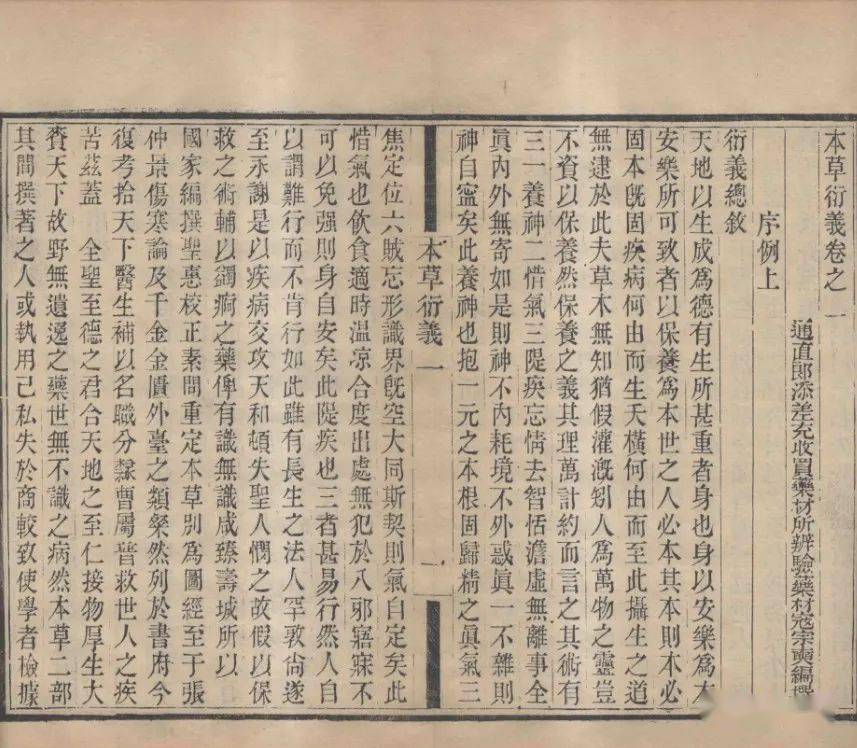 本草衍義卷之一
通直郎添差充收買藥材所辨驗藥材寇宗奭編撰
序例上
衍義總敘
天地以生成爲德有生所甚重者身也身以安樂爲本
安樂所可致者以保養爲本世之人必本其本則本必
固本旣固疾病何由而生夭橫何由而至此攝生之道
無逮於此夫草木無知猶假灌漑矧人爲萬物之靈豈
不資以保養然保養之義其理萬計約而言之其術有
三一養神二惜氣三隄疾忘情去智恬澹虛無離事全
眞內外無寄如是則神不內耗境不外惑眞一不雜則
神自寧矣此養神也抱一元之本根固歸精之眞氣三
本草衍義 一
一
焦定位六賊忘形識界旣空大同斯契則氣自定矣此
惜氣也飮食適時温凉合度出處無犯於八邪寤寐不
可以免强則身自安矣此隄疾也三者甚易行然人自
以謂難行而不肯行如此雖有長生之法人罕敦尙遂
至永謝是以疾病交攻天和頓失聖人憫之故假以保
救之術輔以蠲痾之藥俾有識無識咸臻壽域所以
國家編撰聖惠校正素問重定本草別爲圖經至于張
仲景傷寒論及千金金匱外臺之類粲然列於書府今
復考拾天下醫生補以名職分隸曹屬普救世人之疾
苦茲蓋 全聖至德之君合天地之至仁接物厚生大
賚天下故野無遺逸之藥世無不識之病然本草二部
其間撰著之人或執用己私失於商較致使學者檢據